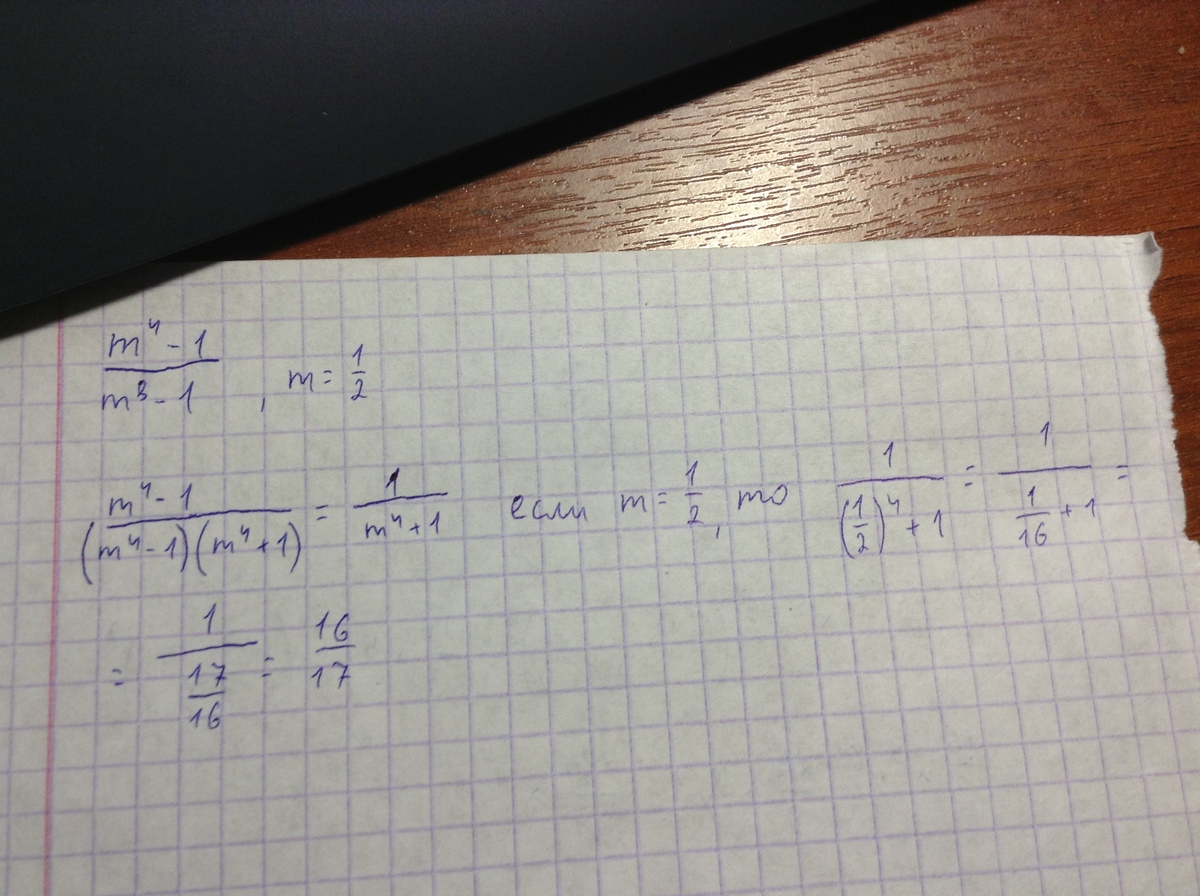 m⁴ - 1 / m⁸ - 1 , m = 1/2
m⁴ - 1 / (m⁴ - 1)(m⁴ + 1) = 1 / m⁴ + 1 если m = 1/2, то 1 / (1/2)⁴ + 1 = 1 / 1/16 + 1 =
= 1 / 17/16 = 16/17